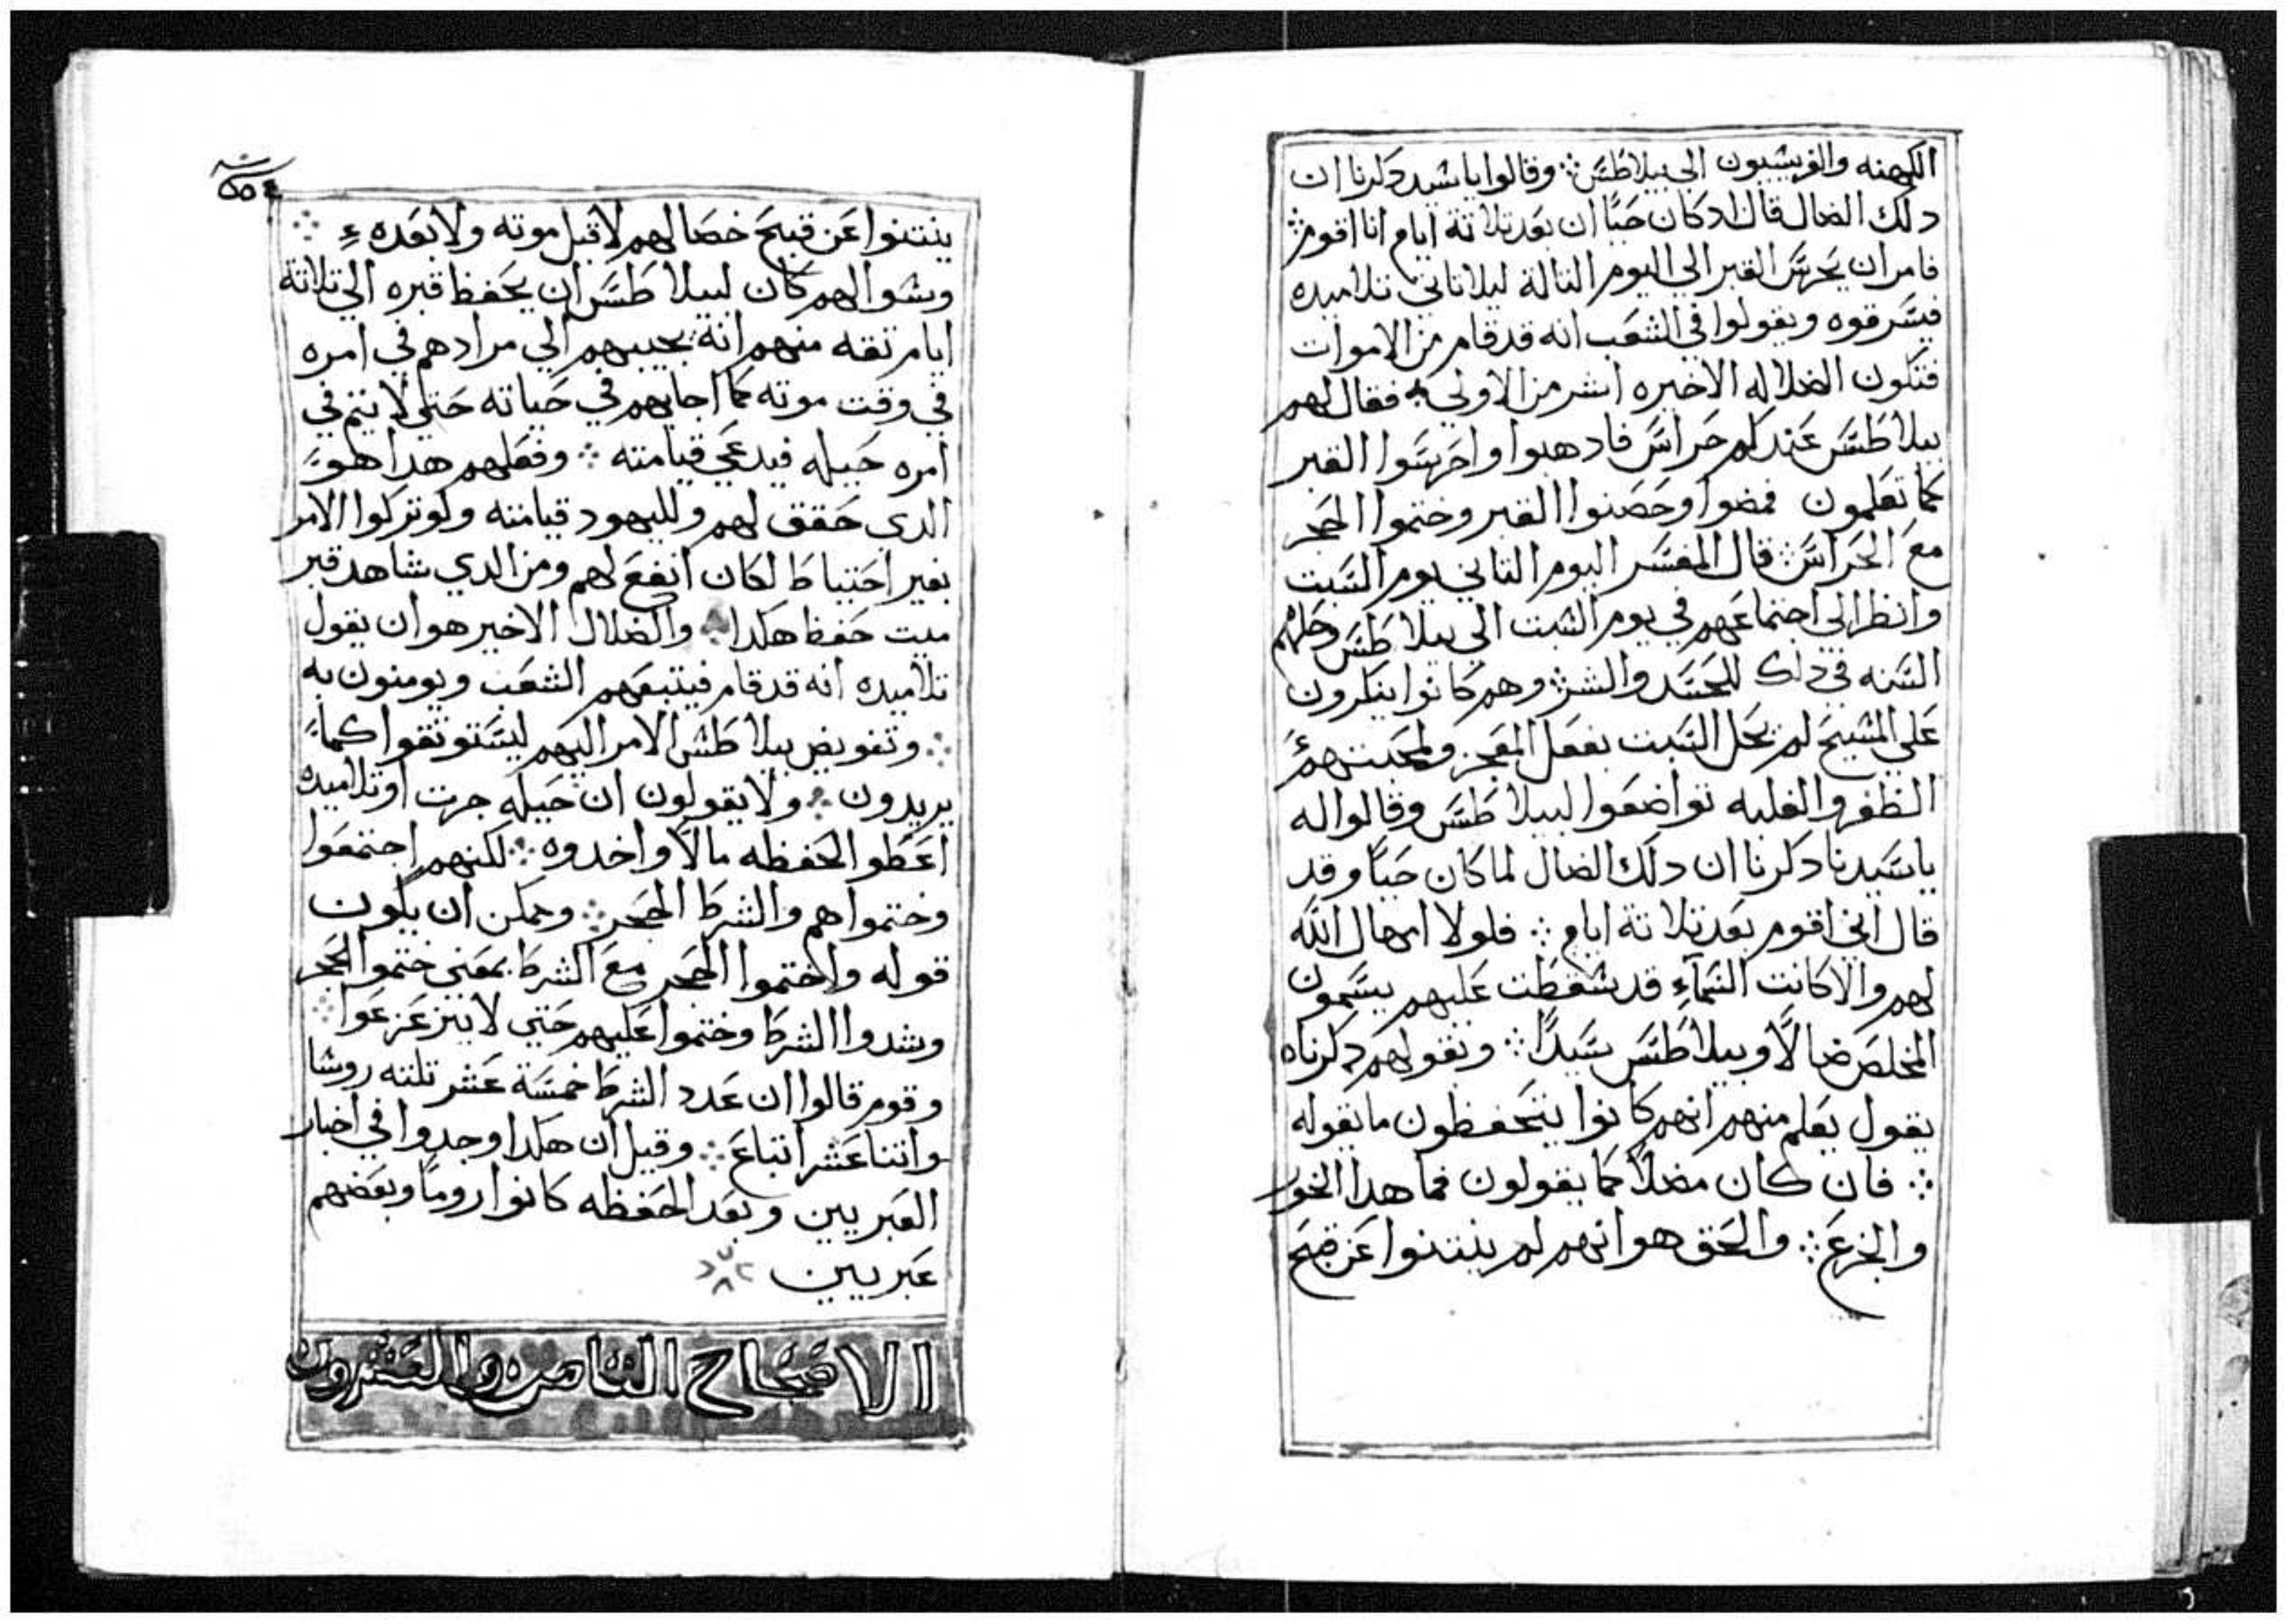 الكهنه والفريسيون الى بيلاطس ⁘ وقالوا يا سيد دكرنا ان
دلك الضال قال اد كان حيًا ان بعد تلاتة ايام انا اقوم ⁘
فامر ان يحرس القبر الي اليوم التالة ليلا تاتي تلاميده
فيسرقوه ويقولوا في الشعب انه قد قام من الاموات
فتكون الضلاله الاخيره اشر من الاولي ⁘ فقال لهم
بيلاطس عندكم حراس فادهبوا واحرسوا القبر
كما تعلمون فمضوا وحصنوا القبر وختموا الحجر
مع الحراس ⁘ قال المفسر اليوم التاني يوم السبت
وانظر الي اجتماعهم في يوم السبت الي بيلاطس وحلهم
السنه في دلك للحسد والشر ⁘ وهم كانوا ينكرون
علي المسيح لم يحل السبت بفعل المعجز ولمحبتهم
الظفر والغلبه تواضعوا لبيلاطس وقالوا له
يا سيدنا دكرنا ان دلك الضال لما كان حيًا وقد
قال اني اقوم بعد تلاتة ايام ⁘ فلولا امهال الله
لهم والا كانت السماء قد سقطت عليهم يسمون
المخلص ضالًا وبيلاطس سيدًا ⁘ وتقولهم دكرناه
يقول يعلم منهم انهم كانوا يتحفظون ما يقوله
⁘ فان كان مضلًا كما يقولون فما هدا الخور
والجزع ⁘ والحق هو انهم لم ينتنوا عن قبح
ينتنوا عن قبيح خصالهم لا قبل موته ولا بعده ⁘
وسوالهم كان لبيلاطس ان يحفظ قبره الي تلاتة
ايام تقه منهم انه يجيبهم الي مرادهم في امره
في وقت موته كما اجابهم في حياته حتي لا يتم في
امره حيله فيدعي قيامته ⁘ وفعلهم هدا هو
الدي حقق لهم ولليهود قيامته ولو تركوا الامر
بغير احتياط لكان انفع لهم ومن الدي شاهد قبر
ميت حفظ هكدا ⁘ والضلال الاخير هو ان يقول
تلاميده انه قد قام فيتبعهم الشعب ويومنون به
⁘ وتفويض بيلاطس الامر اليهم ليستوتقوا كما
يريدون ⁘ ولا يقولون ان حيله جرت او تلاميده
اعطوا الحفظه مالًا واخدوه ⁘ لكنهم اجتمعوا
وختموا هم والشرط الحجر ⁘ ويمكن ان يكون
قوله واختموا الحجر مع الشرط بمعني ختموا الحجر
وشدوا الشرط وختموا عليهم حتي لا يتزعزعوا ⁘
وقوم قالوا ان عدد الشرط خمسة عشر تلته روسا
واتنا عشر اتباع ⁘ وقيل ان هكدا وجدوا في اخبار
العبريين وبعد الحفظه كانوا رومًا وبعضهم
عبريين
الاصحاح التامن والعشرون